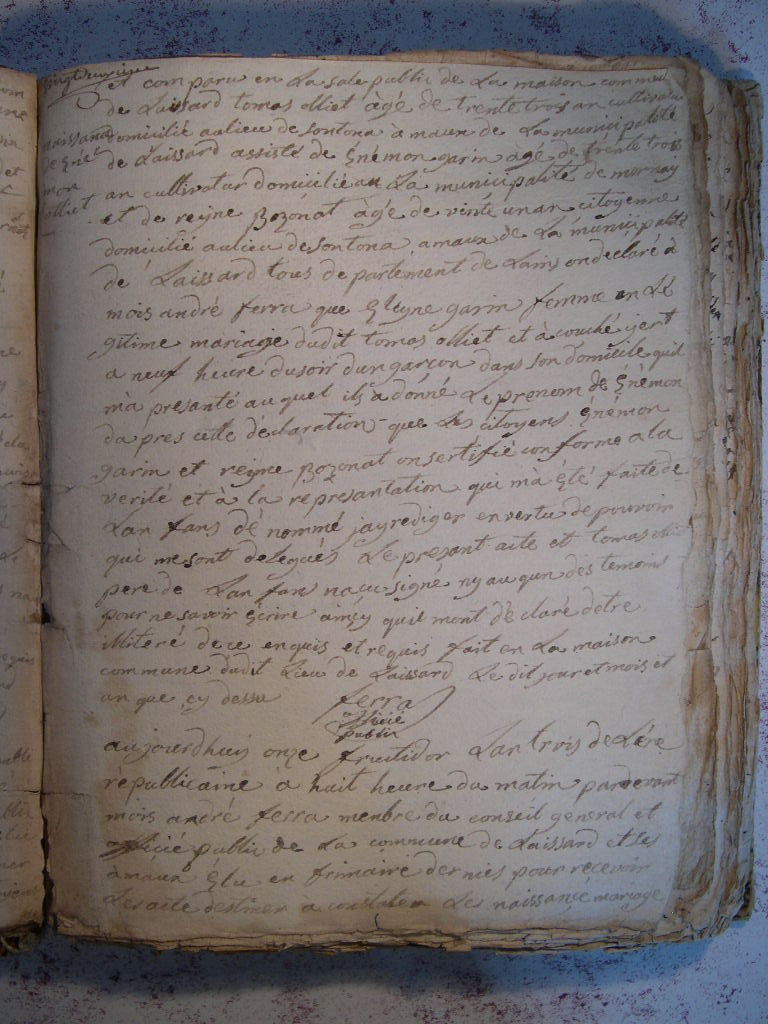 et comparu en La sale public de La maison commu
de Laissard tomas olliet àgé de trente trois an cultivateu
naissance domicilié aulieu de sontona à maux de La municipalité
de Enémon de Laissard assisté de Enémon garin àgé de trente trois
olliet an cultivatur domicilié au La municipalité de mornay
et de reyne Bozonat àgé de vinté unan citoyenne
domicilié aulieu de sontona amaux de La municipalité
de Laissard tous de partement de Lain on declaré à
mois andré ferra que garin femme en Lé
gitime mariage dudit tomas olliet et à couché jert
a neuf heure dusoir dungarçon dans son domicile quil
mà presanté au quel ils a donné Le prenom de Enémon
da pres cette declaration que Les citoyens Enémon
garin et reyne Bozonat on sertifié conforme a la
verité et à la represantation qui mà été faite de
Lan fans dé nommé jay rediger en vertu de pouvoir
qui me sont delegués Le presant aite et tomas olliet
pere de Lan fans na cu signé ny au qun des temoins
pour ne savoir écrire ainçy quil mont dé claré detre
illiteré de ce enquis et requis fait en La maison
commune dudit Lieu de Laissard Le dit jour et mois et
an que çy dessu ferra
officié
public
aujourdhuy onze fruitidor Lan trois de Lére
républicaine à huit heure du matin pardevant
mois andré ferra menbre du conseil general et
officié public de La commune de Laissard et ses
àmaux élu en frimaire dernies pour recevoir
Les aite destiner a constater Les naissançe mariage